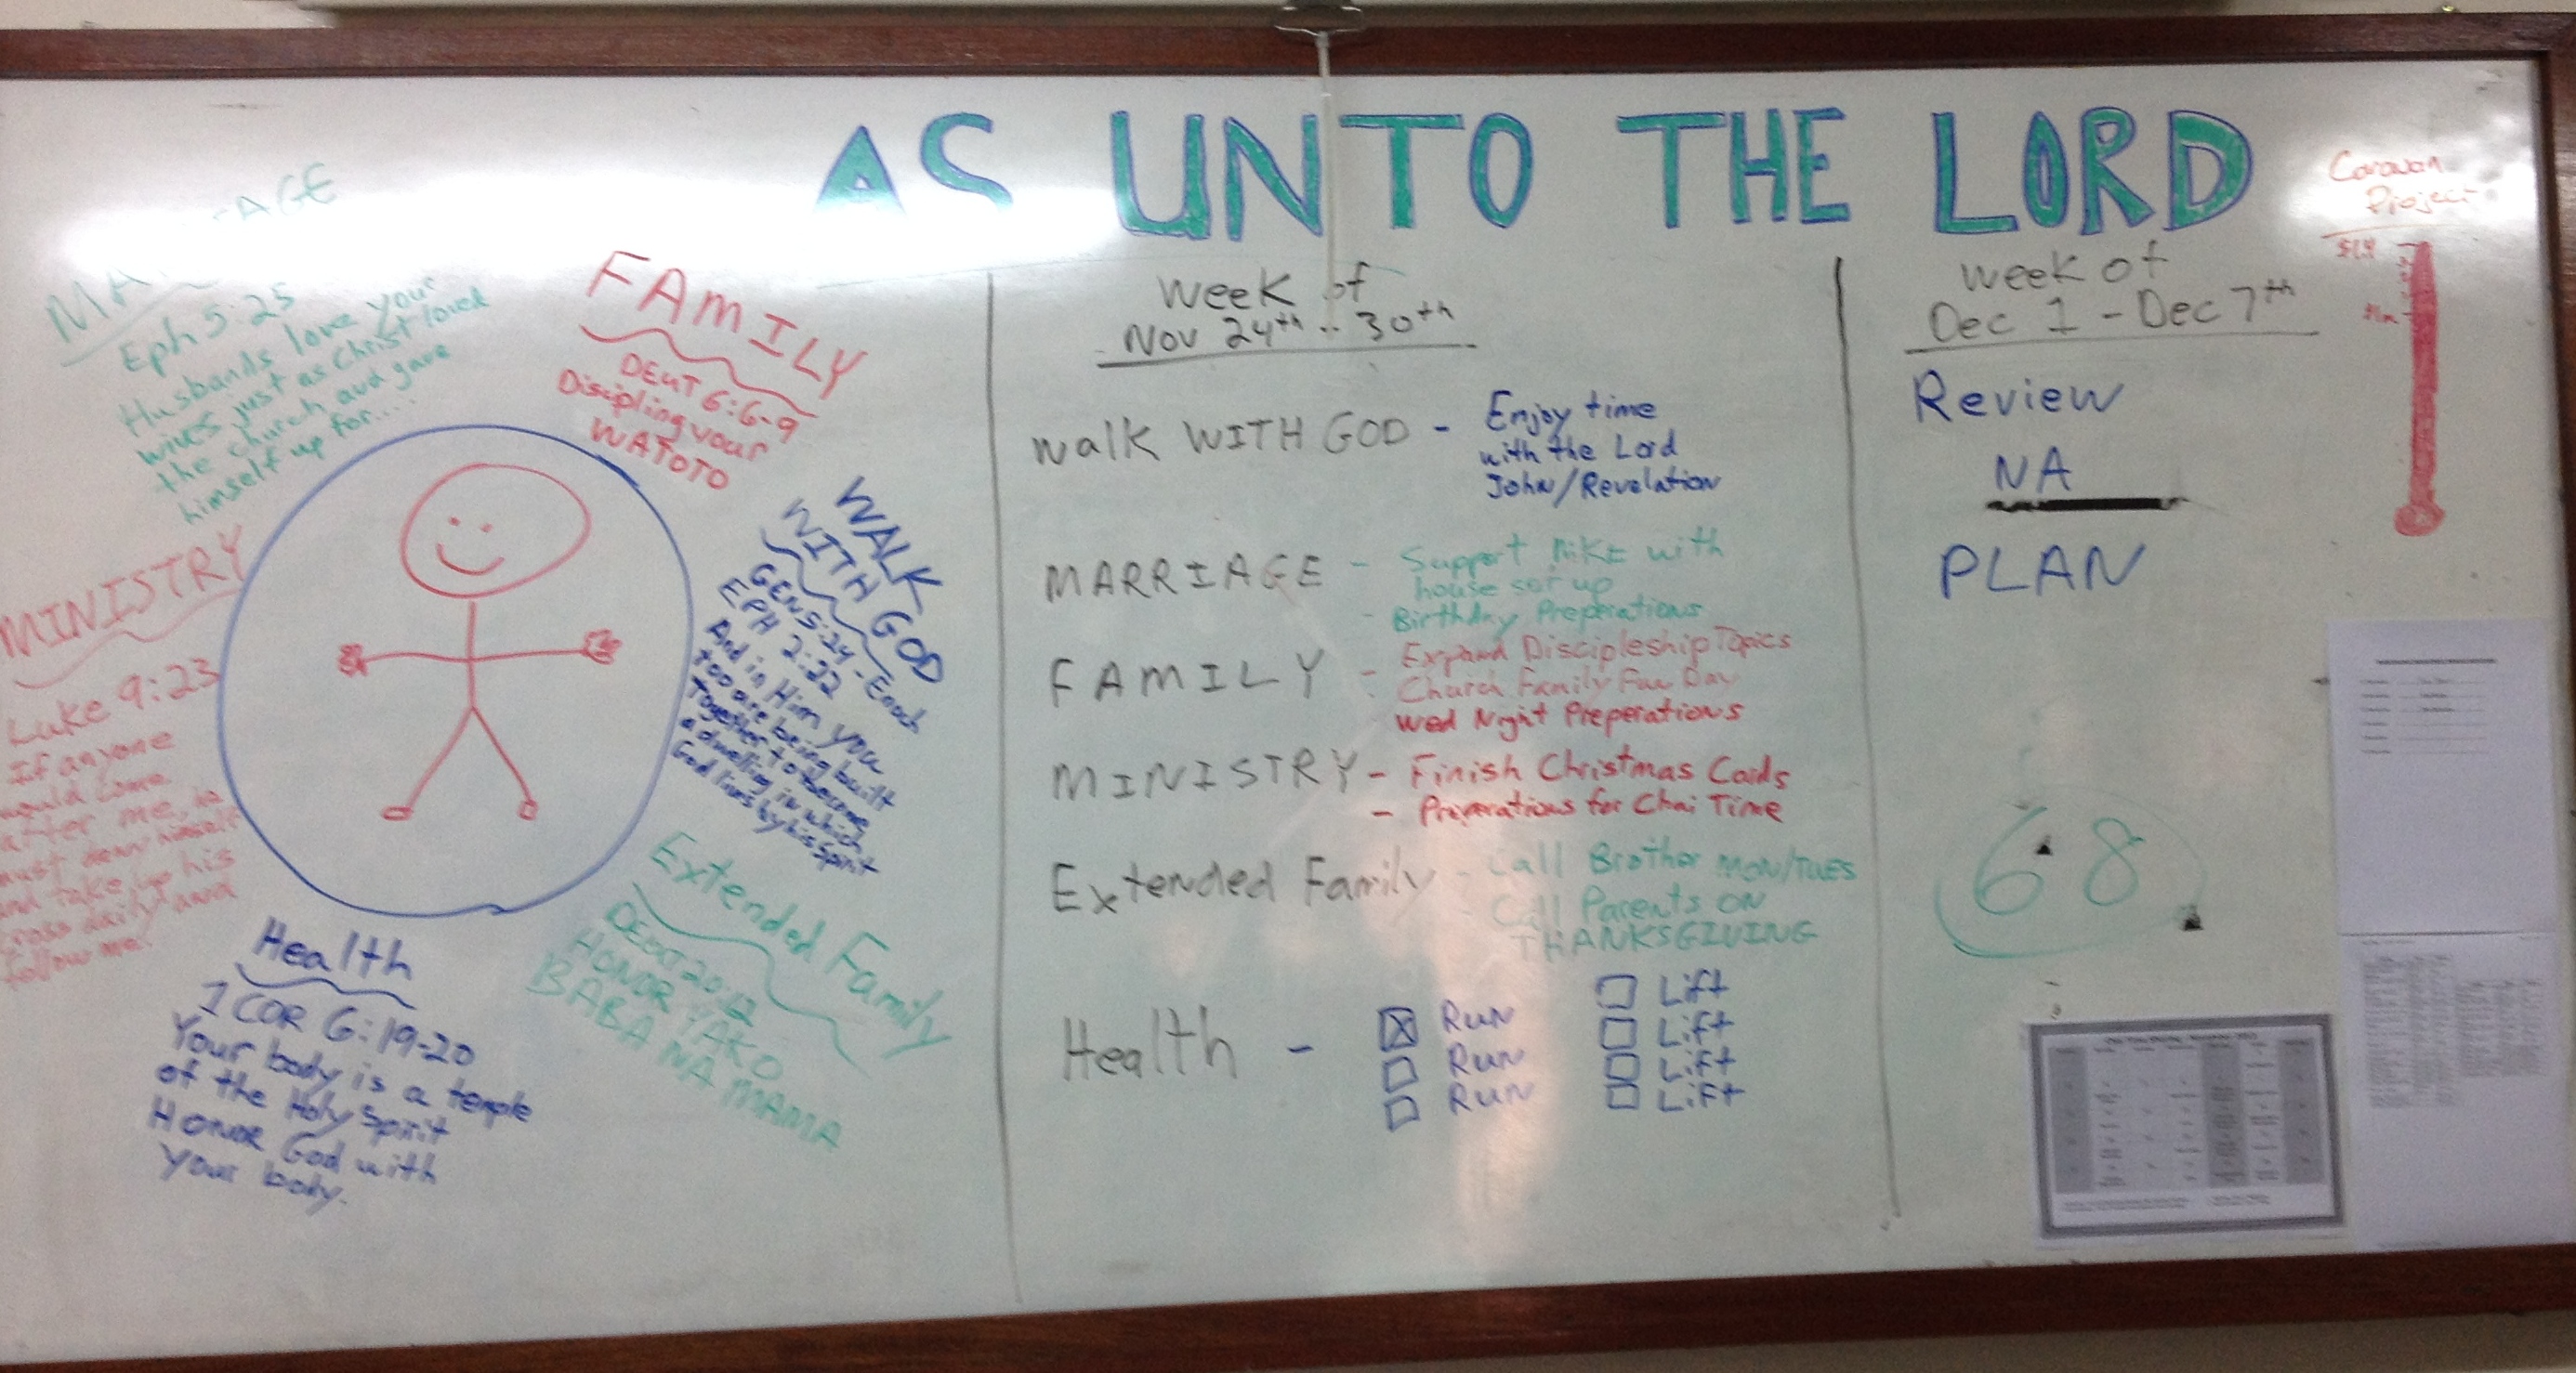 AS UNTO THE LORD
MARRIAGE
Eph 5:25
Husbands love your
wives just as Christ loved
the church and gave
himself up for....
FAMILY
DEUT 6:6-9
Discipling your
WATOTO
WALK
WITH GOD
GEN 5:24 - Enoch
EPH 2:22
And in Him you
too are being built
Together to become
a dwelling in which
God lives by his Spirit
MINISTRY
Luke 9:23
If anyone
would come
after me, he
must deny himself
and take up his
cross daily and
follow me.
Health
1 COR 6:19-20
Your body is a temple
of the Holy Spirit
Honor God with
your body.
Extended Family
DEUT 20:12
HONOR YAKO
BABA NA MAMA
Week of
Nov 24th - 30th
Walk WITH GOD - Enjoy time
with the Lord
John/Revelation
MARRIAGE - Support Mike with
house set up
- Birthday Preperations
FAMILY - Expand Discipleship Topics
Church Family Fun Day
Wed Night Preperations
MINISTRY - Finish Christmas Cards
- Preperations for Chai Time
Extended Family - Call Brother MON/TUES
- Call Parents ON
THANKSGIVING
Health - Run Lift
Run Lift
Run Lift
Lift
Week of
Dec 1 - Dec 7th
Review
NA
PLAN
68
Caravan
Project